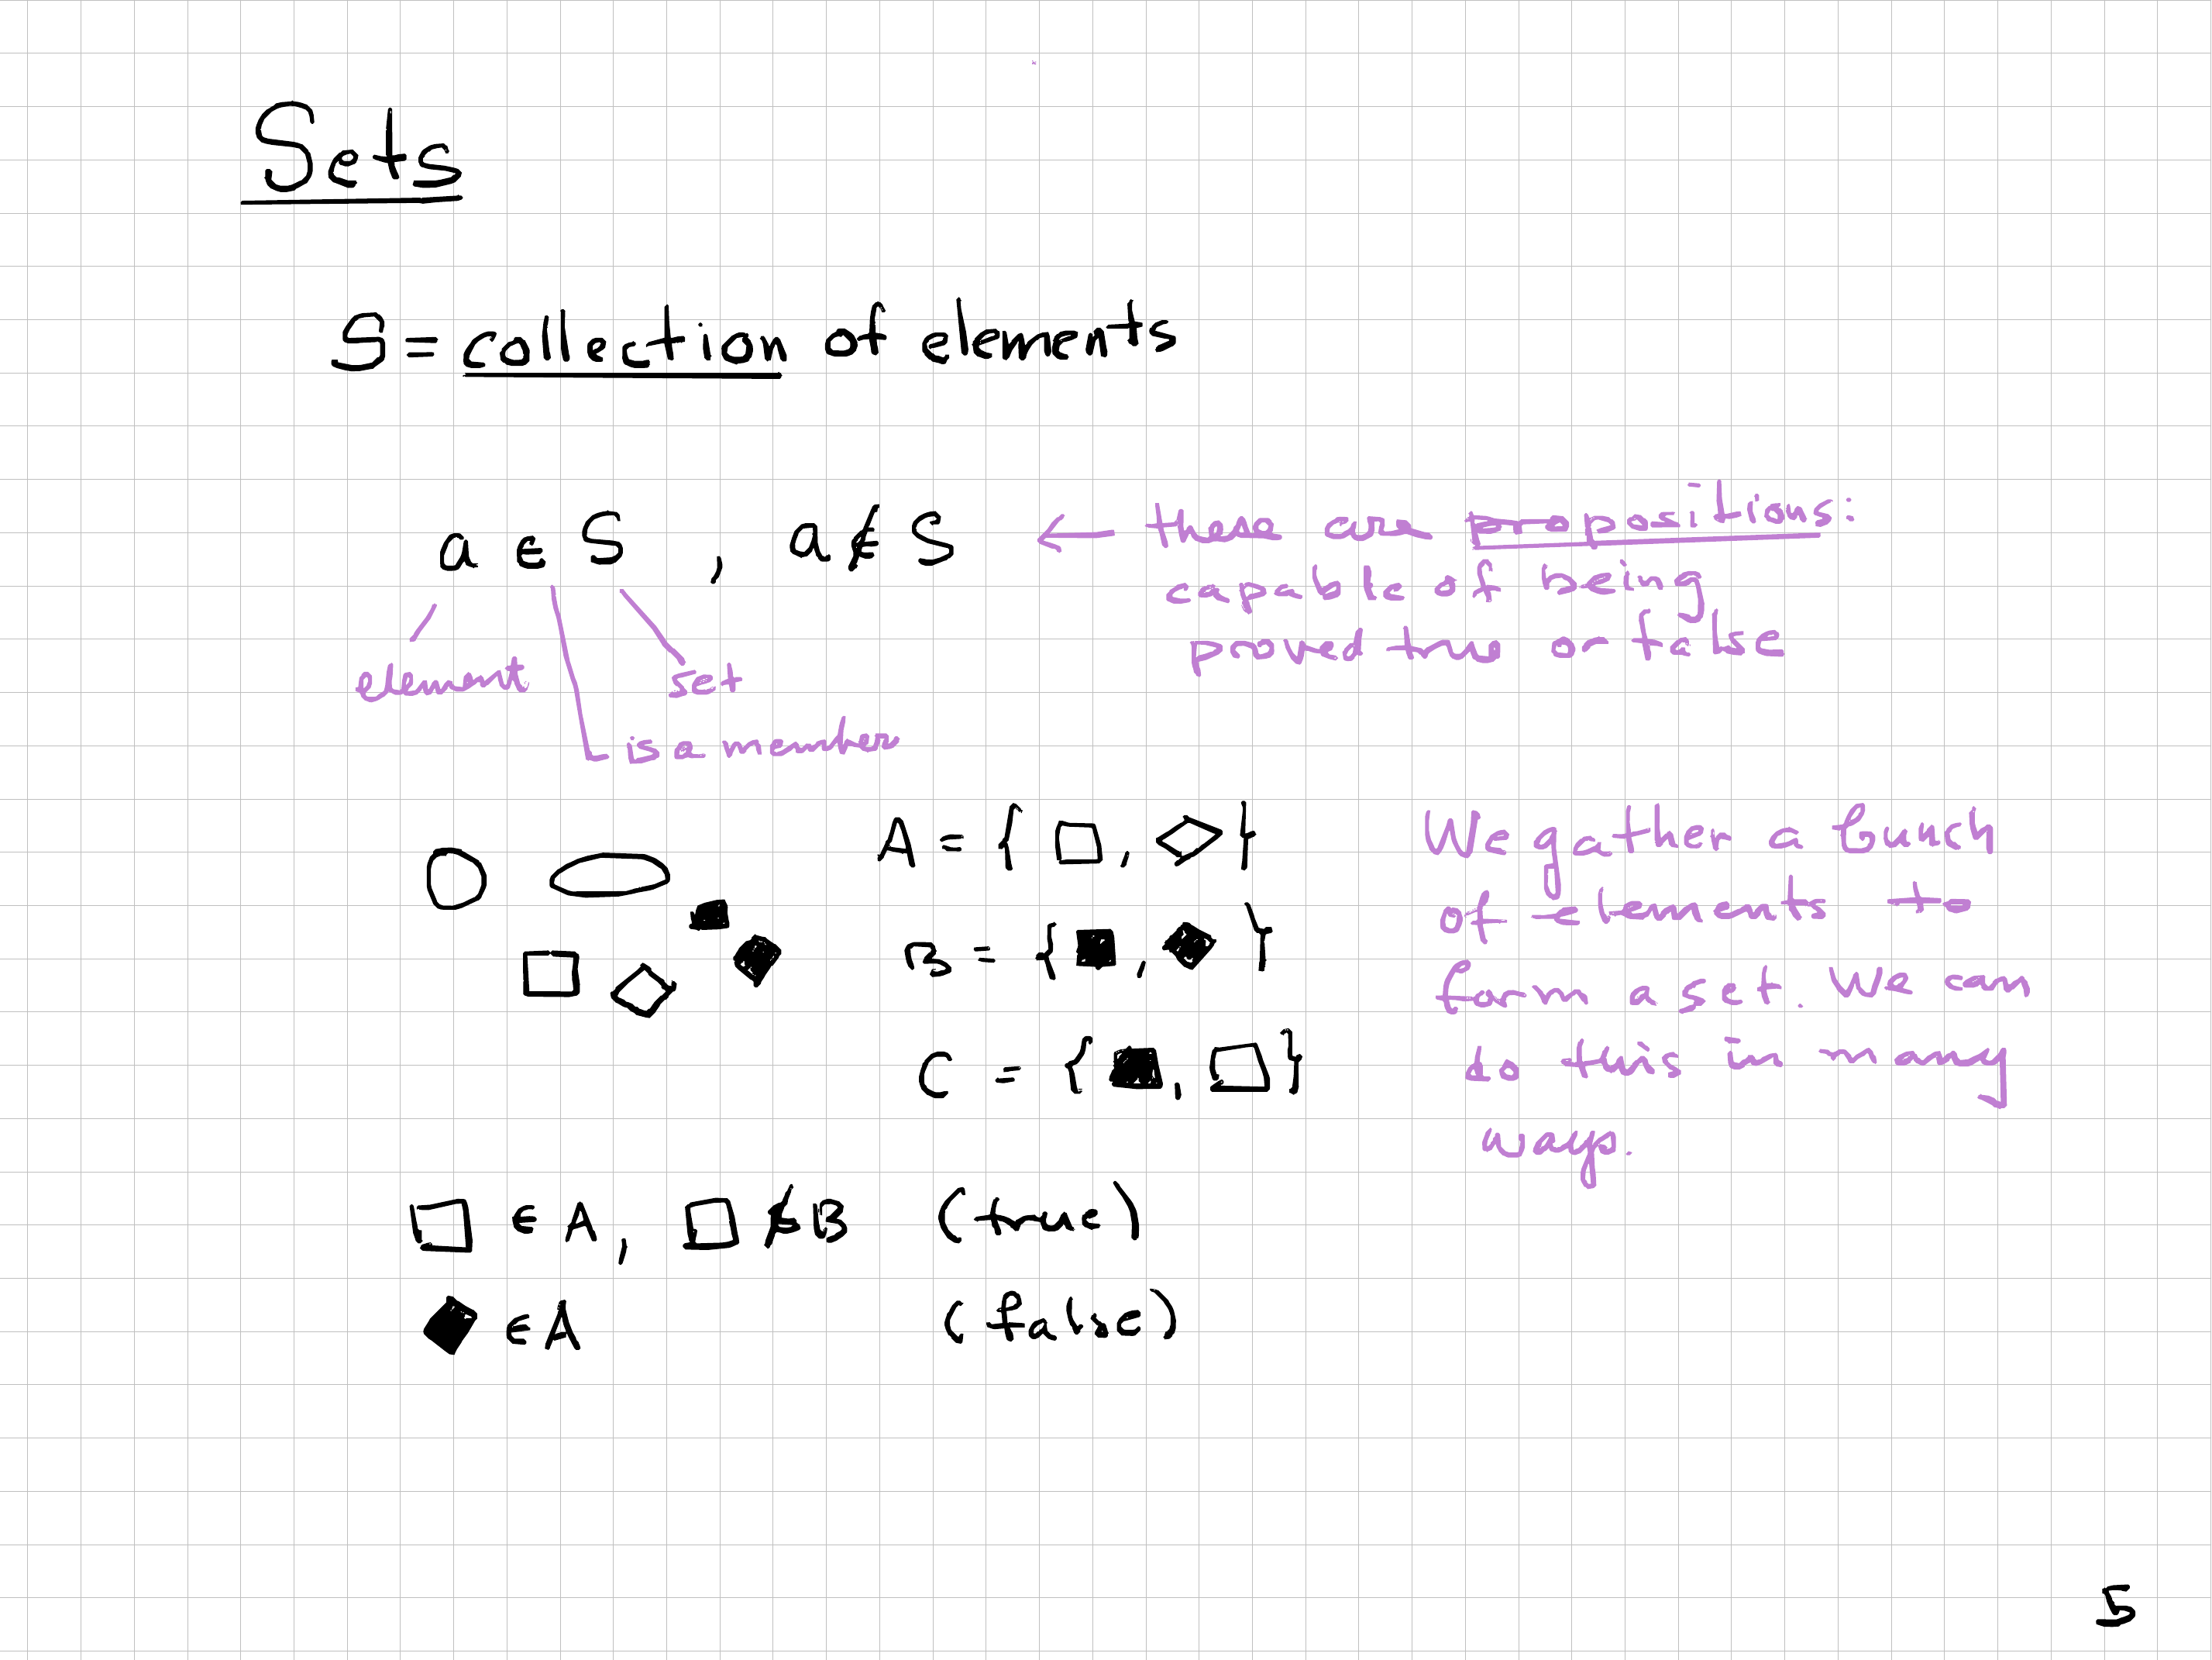 Sets
S = collection of elements
a ∈ S , a ∉ S ← these are propositions:
capable of being
proved true or false
element
set
is a member
A = { □, ◇ }
B = { ■, ◆ }
C = { ■, □ }
We gather a bunch
of elements to
form a set. We can
do this in many
ways.
□ ∈ A, □ ∉ B (true)
◆ ∈ A (false)
5